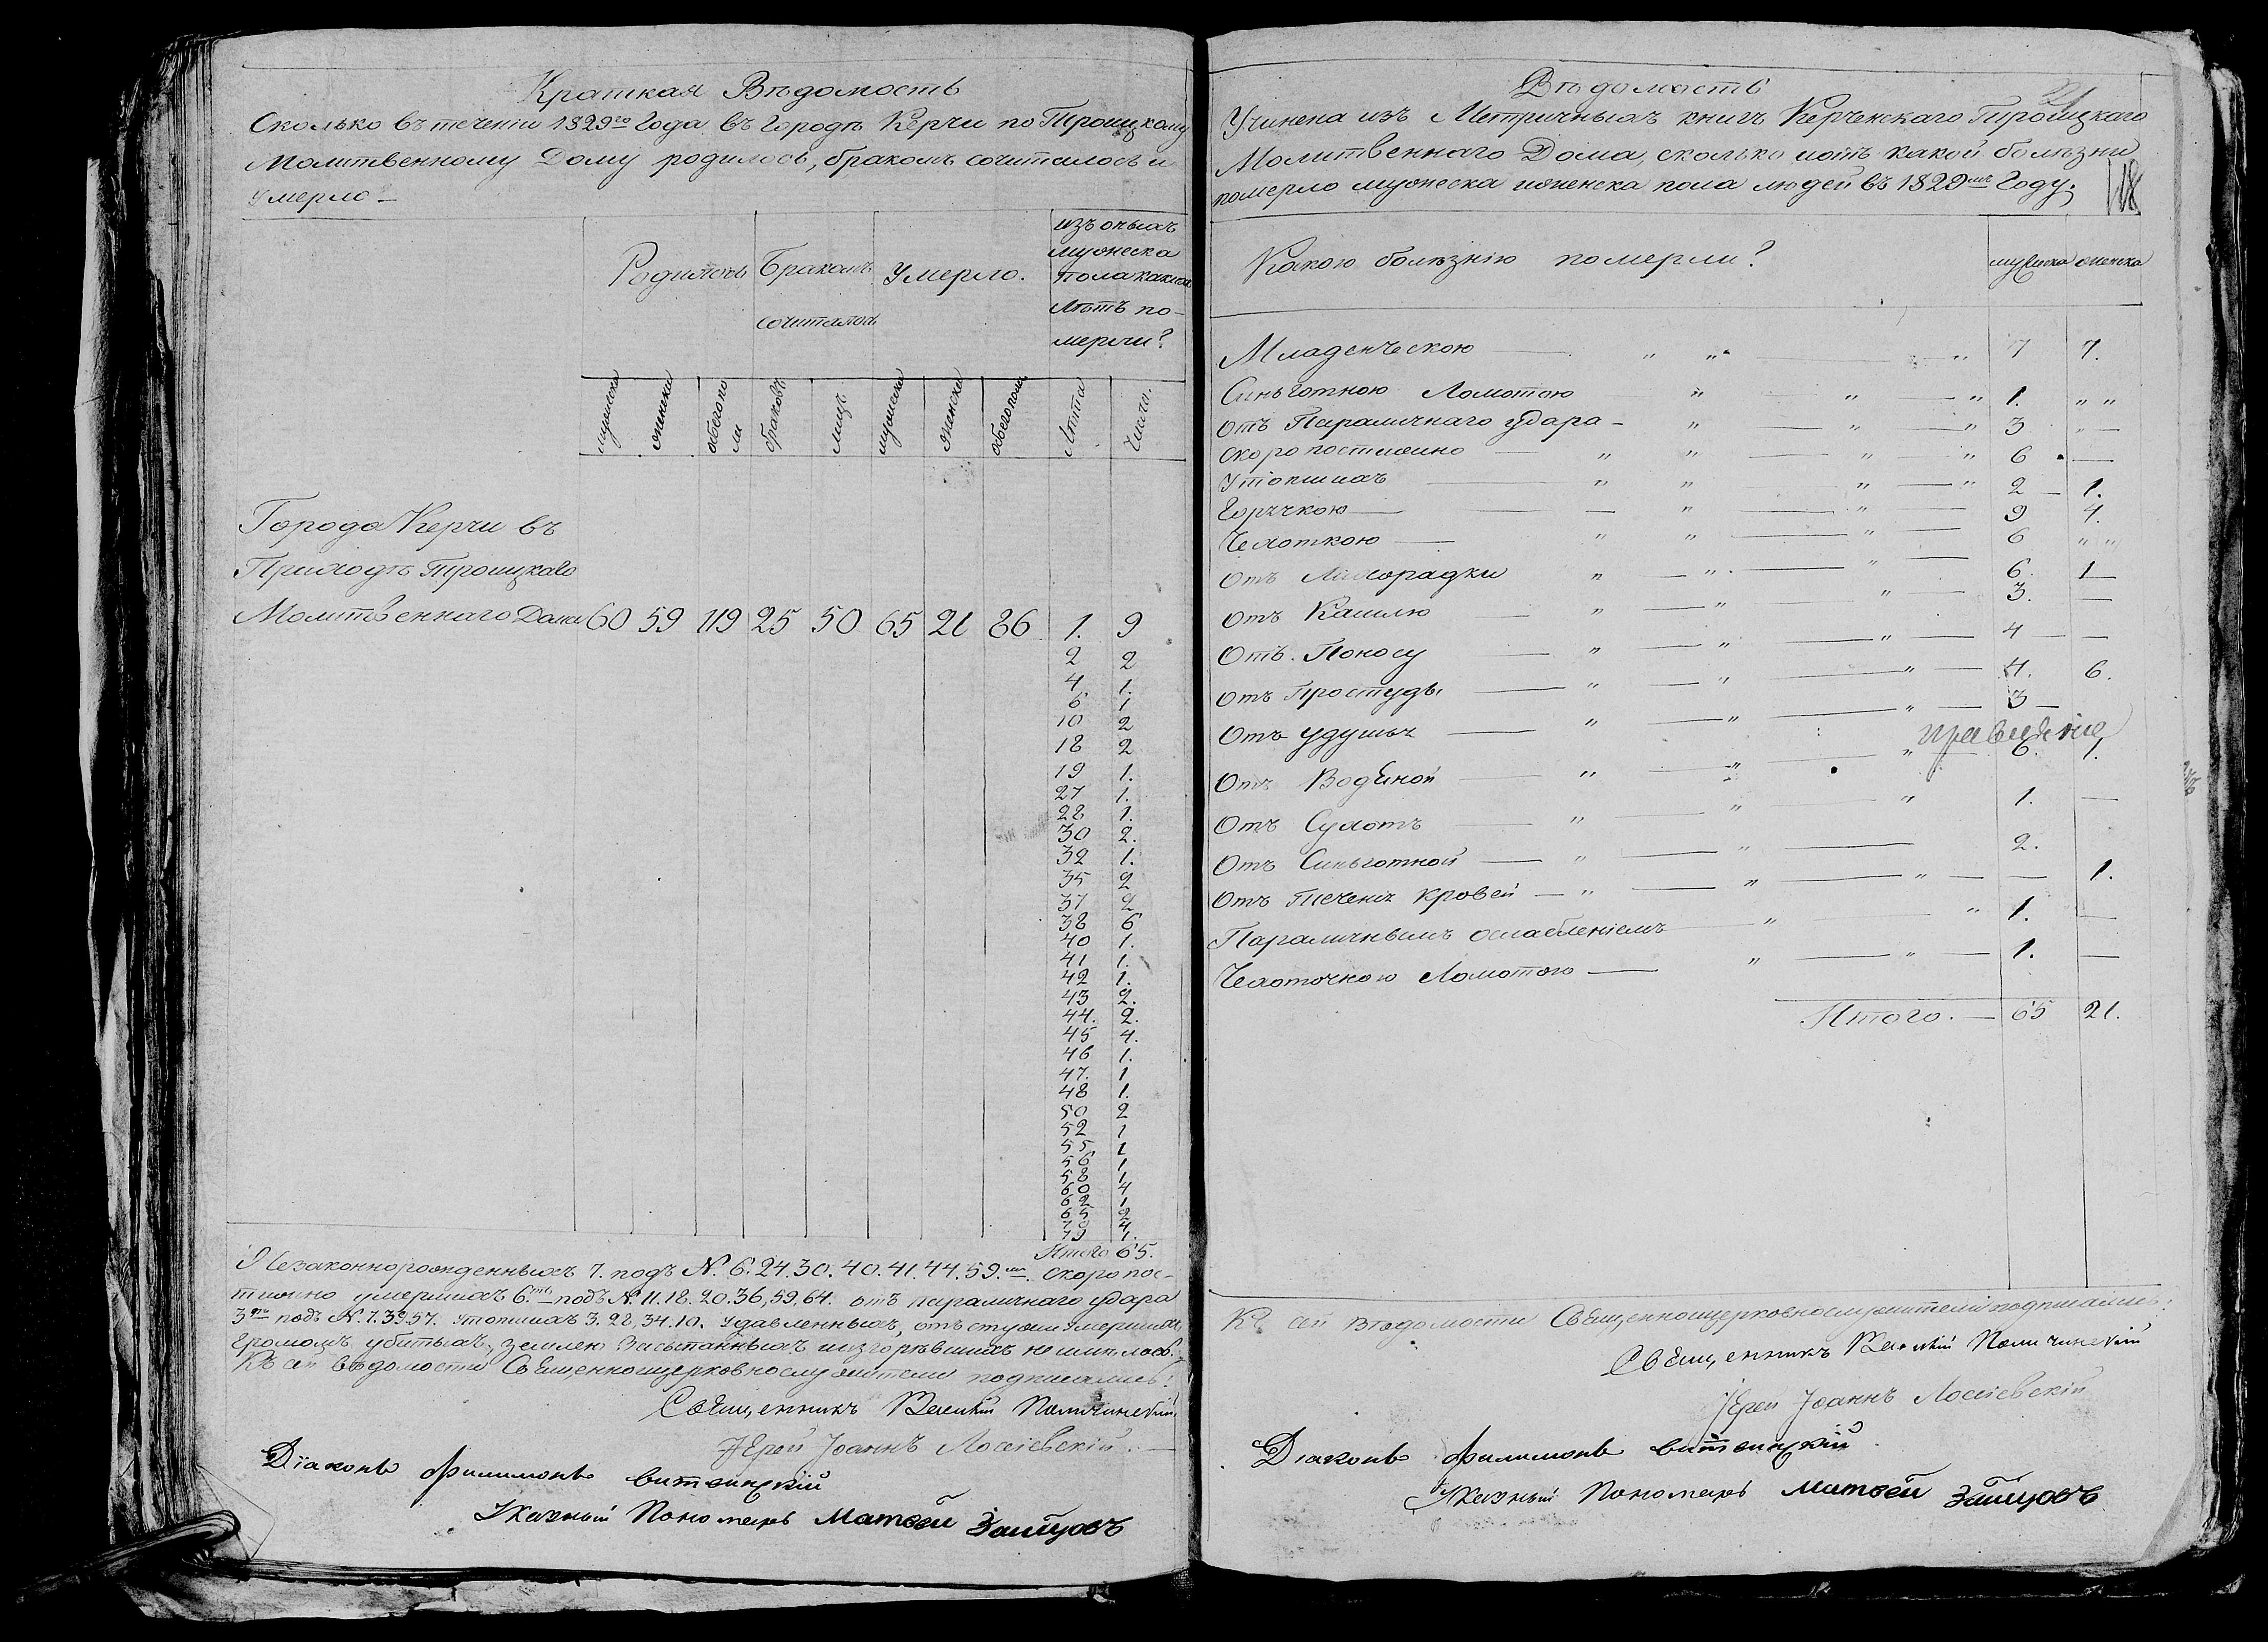 Краткая Вѣдомость
Сколько въ теченіи 1829го Года въ Городѣ Керчи по Троицкому
Молитвенному Дому родилось, бракомъ сочиталось и
умерло
Родилось
Бракомъ сочиталось
Умерло.
изъ оныхъ
мужеска
пола какихъ
лѣтъ по-
мерли?
мужеска
женска
обоего по
ла
браковъ
лицъ
мужеска
женска
обоего пола
Лѣта
Число.
Города Керчи въ
Приходѣ Троицкаго
Молитвеннаго Дома 60 59 119 25 50 65 21 86 1. 9
2 2
4 1.
6 1
10 2
18 2
19 1.
27 1.
28 1.
30 2.
32 1.
35 2
37 2
38 6
40 1.
41 1.
42 1.
43 2.
44. 2.
45 4.
46 1.
47. 1
48 1.
50 2
52 1
55 1
56 1
58 1
60 4
62 1
65 2
4
79 1.
Итого 65.
Незаконнорожденныхъ 7. подъ N. 6. 24. 30. 40. 41. 44. 59. скоропос-
тижно умершихъ 6. подъ N. 11. 18. 20. 36, 59, 64. отъ параличнаго удара
3 подъ N. 7. 39. 57. утопшихъ 3. 28, 34. 10. Удавленныхъ, отъ стужи умершихъ
громомъ убитыхъ, землею засыпанныхъ и изгорѣвшихъ не имѣлось.
Къ сей вѣдомости Священноцерковнослужители подписались:
Священникъ
Іерей Іоаннъ Лосіевскій
Діаконъ Филимонъ
Указный Пономарь Матвей Зайцовъ
Вѣдомость
Учинена изъ Метричныхъ книгъ Керченскаго Троицкаго
Молитвеннаго Дома, сколько и отъ какой болѣзни
померло мужеска и женска пола людей въ 1829мъ Году.
118
Какою болѣзнію померли? мужеска женска
Младенческою 7 7.
Синьготною Ломотою 1. „ „
Отъ Параличнаго удара 3 „ —
Скоропостижно 6 —
Утопшихъ 2 1.
Горячкою 9 4.
Чехоткою 6 „ „
Отъ Лихорадки 6. 1
Отъ Кашлю 3. —
Отъ Поносу 4 —
Отъ Простуды 4. 6.
Отъ Удушья 3 —
Отъ Водяной 6. 1.
Отъ Сухотъ 1. —
Отъ Синьготной 2.
Отъ Теченія Кровей — 1.
Параличнымъ ослабленіемъ 1. —
Чехоточною Ломотою 1. —
Итого. 65 21.
Къ сей вѣдомости Священноцерковнослужители подписались:
Священникъ
Іерей Іоаннъ Лосіевскій
Діаконъ Филимонъ
Указный Пономарь Матвей Зайцовъ